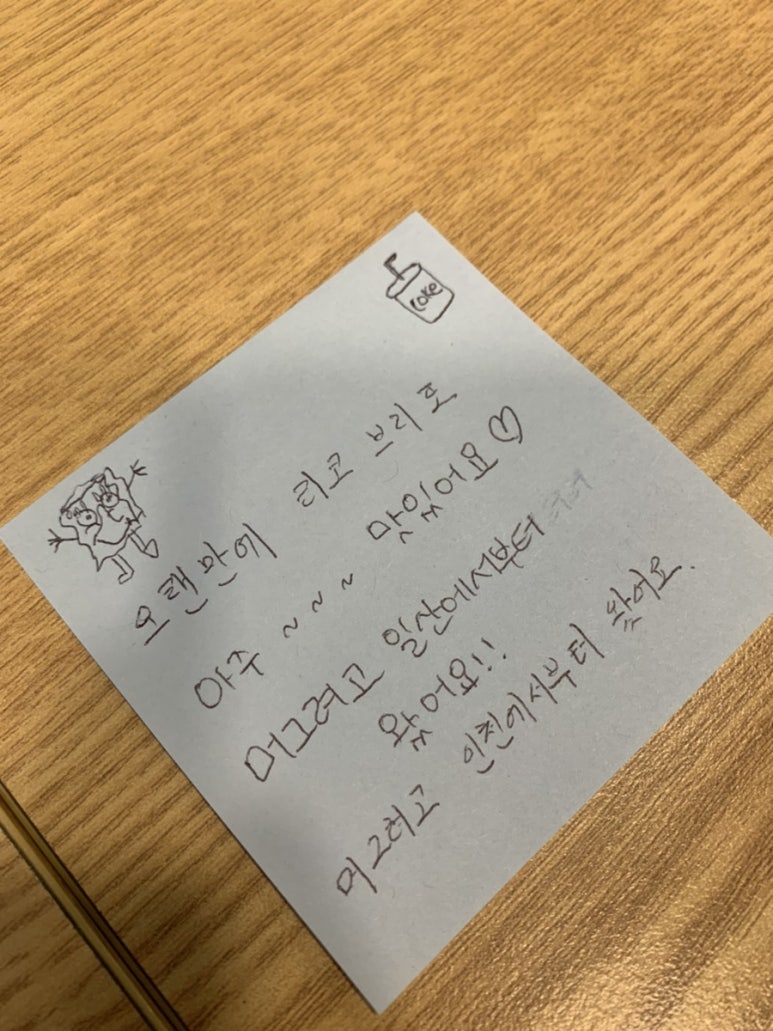 coke
오랜만에 리코 브리또
아주 ~ ~ ~ 맛있어요♡
머그려고 일산에서부터
왔어요!!
머그려고 인천에서부터 왔어요.